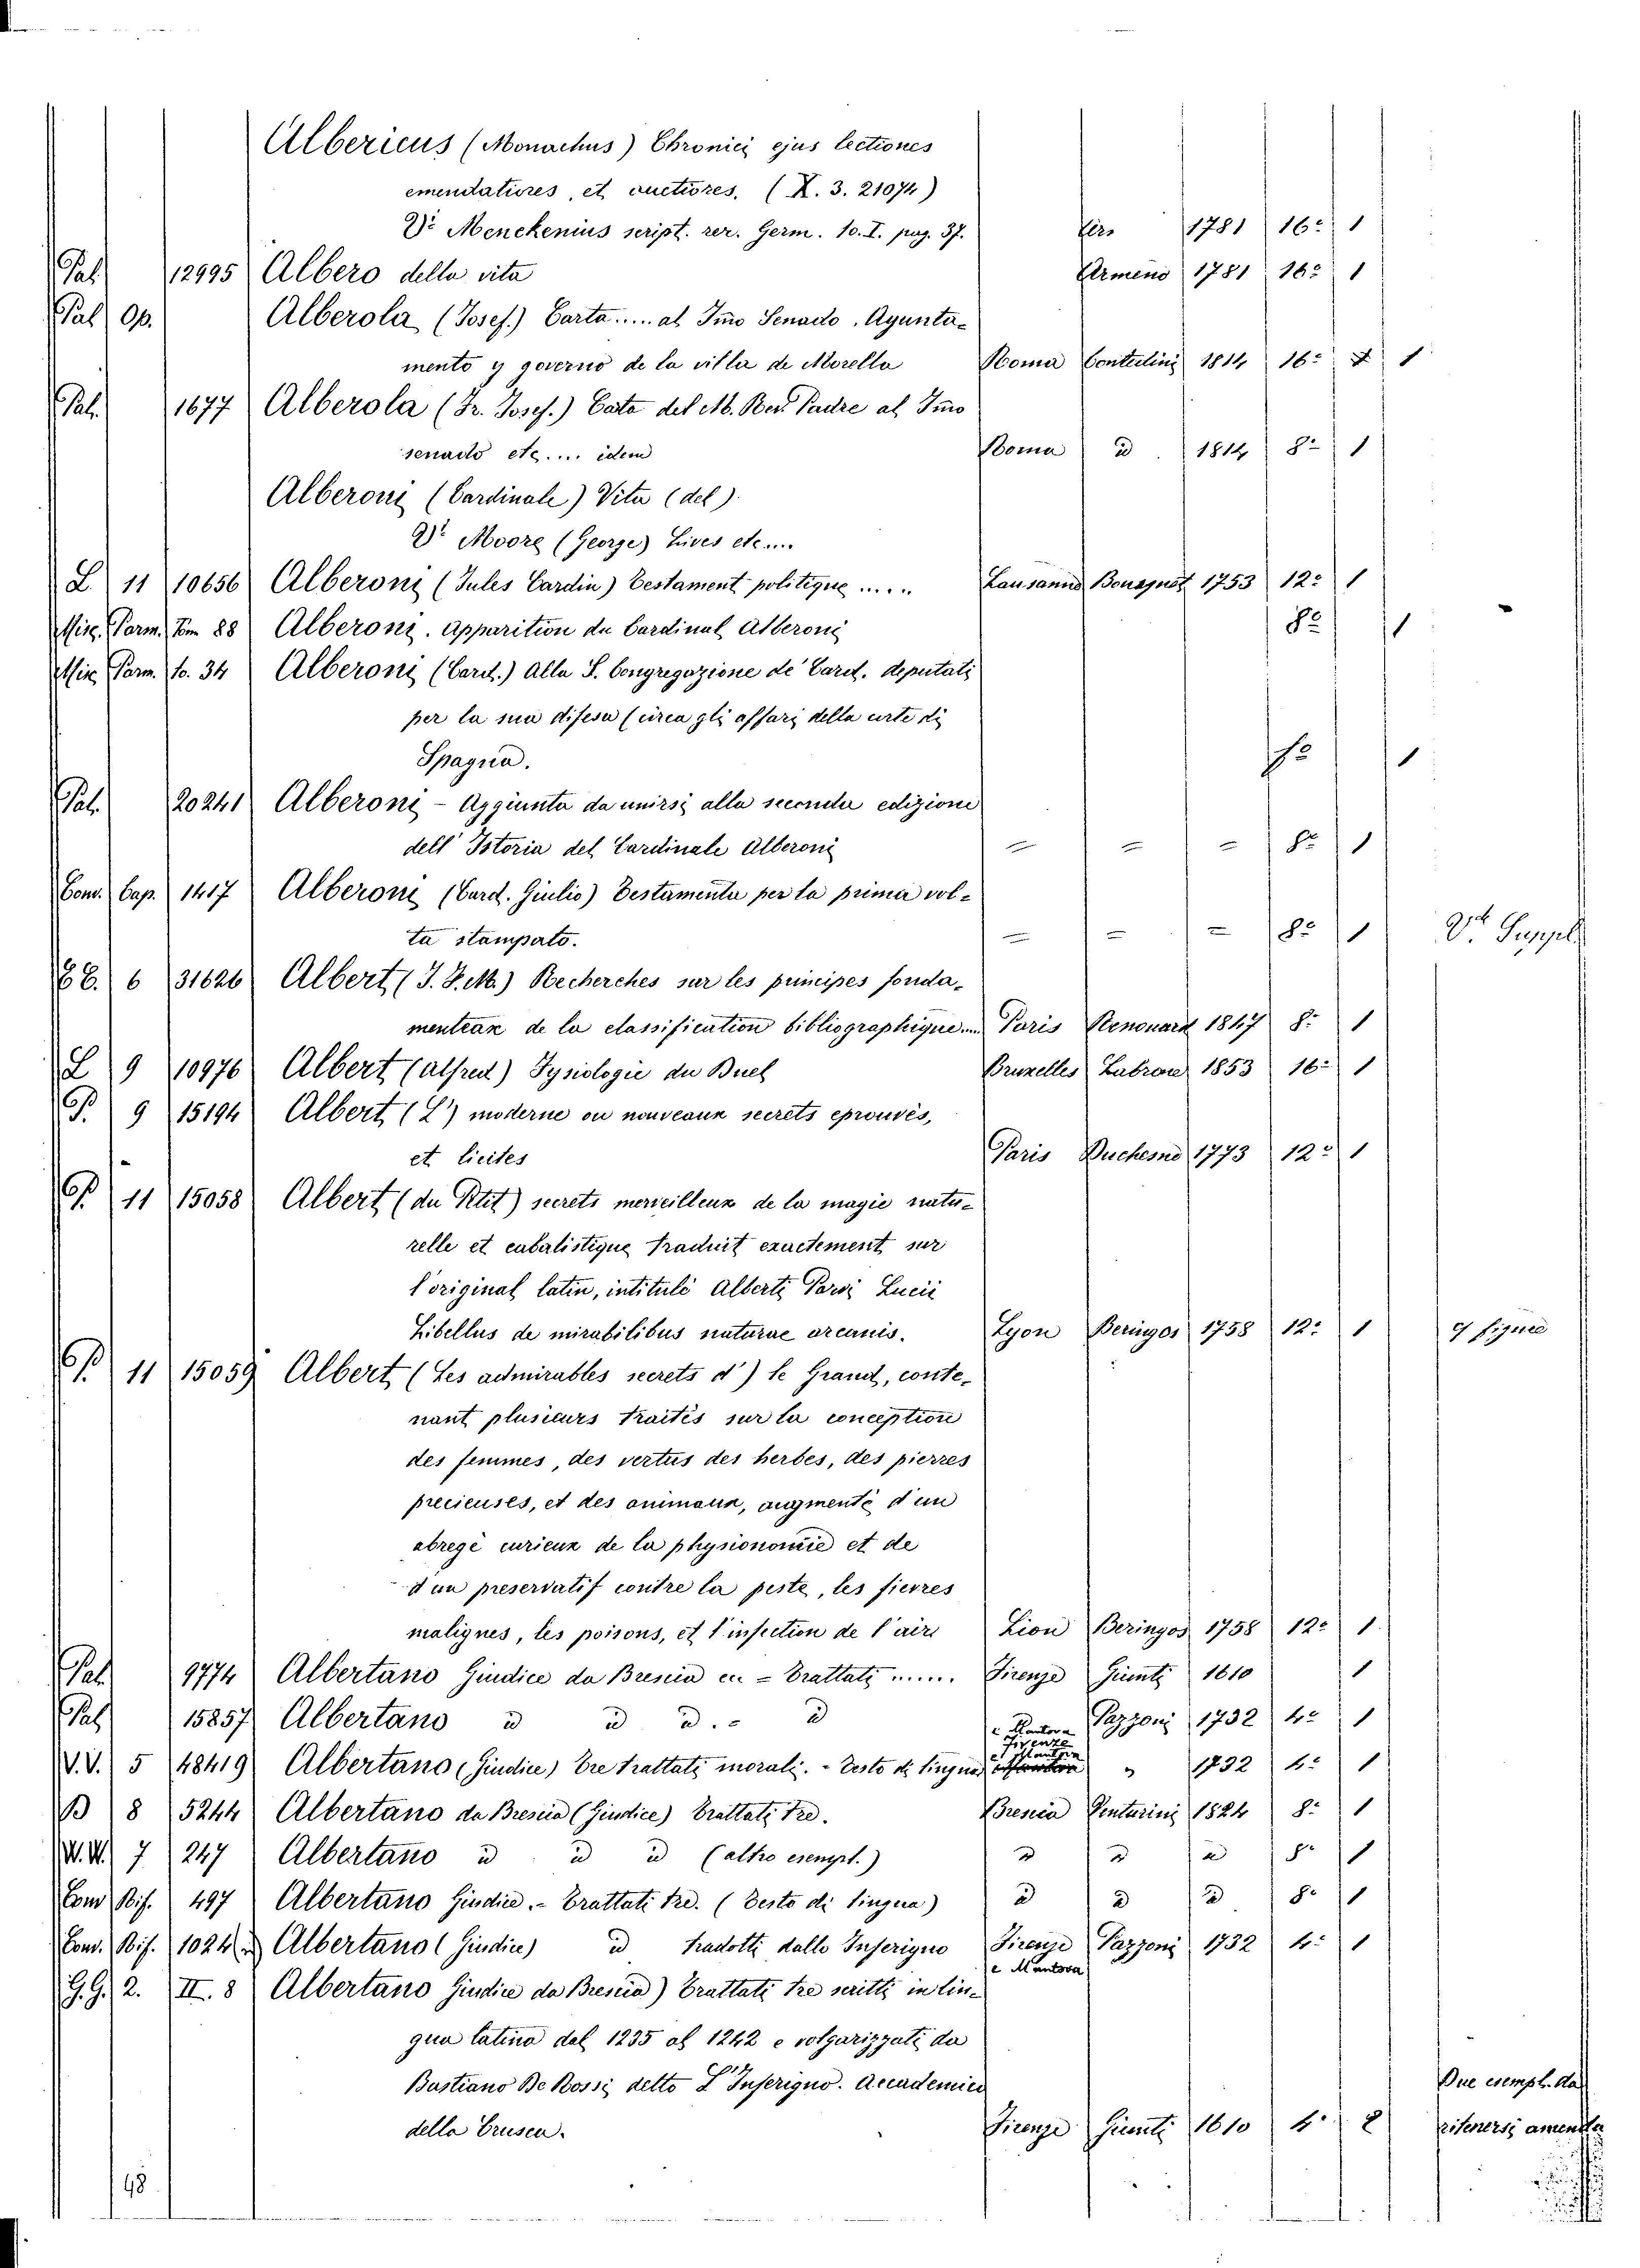 Albericus (Monachus) Chronici ejus lectiones
emendatiores, et auctiores. (X. 3. 21074)
Vi Menckenius script. rer. Germ. to. I. pag. 37. 1781 16: 1
Pal. 12995 Albero della vita Armeno 1781 16: 1
Pal. Op. Alberola (Josef.) Carta..... al Imo Senado. Ayunta-
mento y governo de la villa de Morella Roma Contedini 1814 16: 1
Pal. 1677 Alberola (Fr. Josef.) Cata del M. Rev. Padre al Imo
senado etc.... idem Roma id. 1814 8: 1
Alberoni (Cardinale) Vita (del)
Vi Moore (George) Lives etc....
L 11 10656 Alberoni (Jules Cardin) Testament politique ..... Lausanne Bousquet 1753 12: 1
Misc. Parm. Tom 88 Alberoni. Apparition du Cardinal Alberoni 8: 1
Misc. Parm. to. 34 Alberoni (Card.) Alla S. Congregazione de' Card. deputati
per la sua difesa (circa gli affari della corte di
Spagna. fo 1
Pal. 20241 Alberoni - Aggiunta da unirsi alla seconda edizione
dell' Istoria del Cardinale Alberoni = = = 8: 1
Conv. Cap. 1417 Alberoni (Card. Giulio) Testamento per la prima vol-
ta stampato. = = = 8: 1 Vi Suppl
6 31626 Albert (J. F. M.) Recherches sur les principes fonda-
menteax de la classification bibliographique... Paris Renouard 1847 8: 1
L 9 10976 Albert (Alfred) Fysiologie du Buel Bruxelles 1853 16: 1
P. 9 15194 Albert (L') moderne ou nouveaux secrets eprouvés,
et licites Paris Duchesne 1773 12: 1
P. 11 15058 Albert (du Petit) secrets merveilleux de la magie natu-
relle et cabalistique traduit exactement sur
l'original latin, intitulé Alberti Parvi Lucii
Libellus de mirabilibus naturae arcanis. Lyon Beringos 1758 12: 1 c/ figure
P. 11 15059 Albert (Les admirables secrets d') le Grand, conte-
nant plusieurs traités sur la conception
des femmes, des vertus des herbes, des pierres
precieuses, et des animaux, augmenté d'un
abregé curieux de la physionomie et de
d'un preservatif contre la peste, les fievres
malignes, les poisons, et l'infection de l'air Lion Beringos 1758 12: 1
Pal. 9774 Albertano Giudice da Brescia = Trattati ...... Firenze Giunti 1610 1
Pal. 15857 Albertano id id id. = id e Mantova Pazzoni 1732 4: 1
V.V. 5 48419 Albertano (Giudice) Tre trattati morali. - Testo di lingua Firenze e Mantova " 1732 4: 1
B 8 5244 Albertano da Brescia (Giudice) Trattati tre. Brescia Venturini 1824 8: 1
W.W. 7 247 Albertano id id id (altro esempl.) id id id 8: 1
Conv. Bif. 497 Albertano Giudice. - Trattati tre. (Testo di lingua) id id id 8: 1
Conv. Bif. 1024 Albertano (Giudice) id tradotti dallo Inferigno Firenze e Mantova Pazzoni 1732 4: 1
G.G. 2. II. 8 Albertano Giudice da Brescia) Trattati tre scritti in lin-
gua latina dal 1235 al 1242 e volgarizzati da
Bastiano De Rossi detto L'Inferigno. Accademico
della Crusca. Firenze Giunti 1610 4: 2 Due esempl. da ritenersi
48